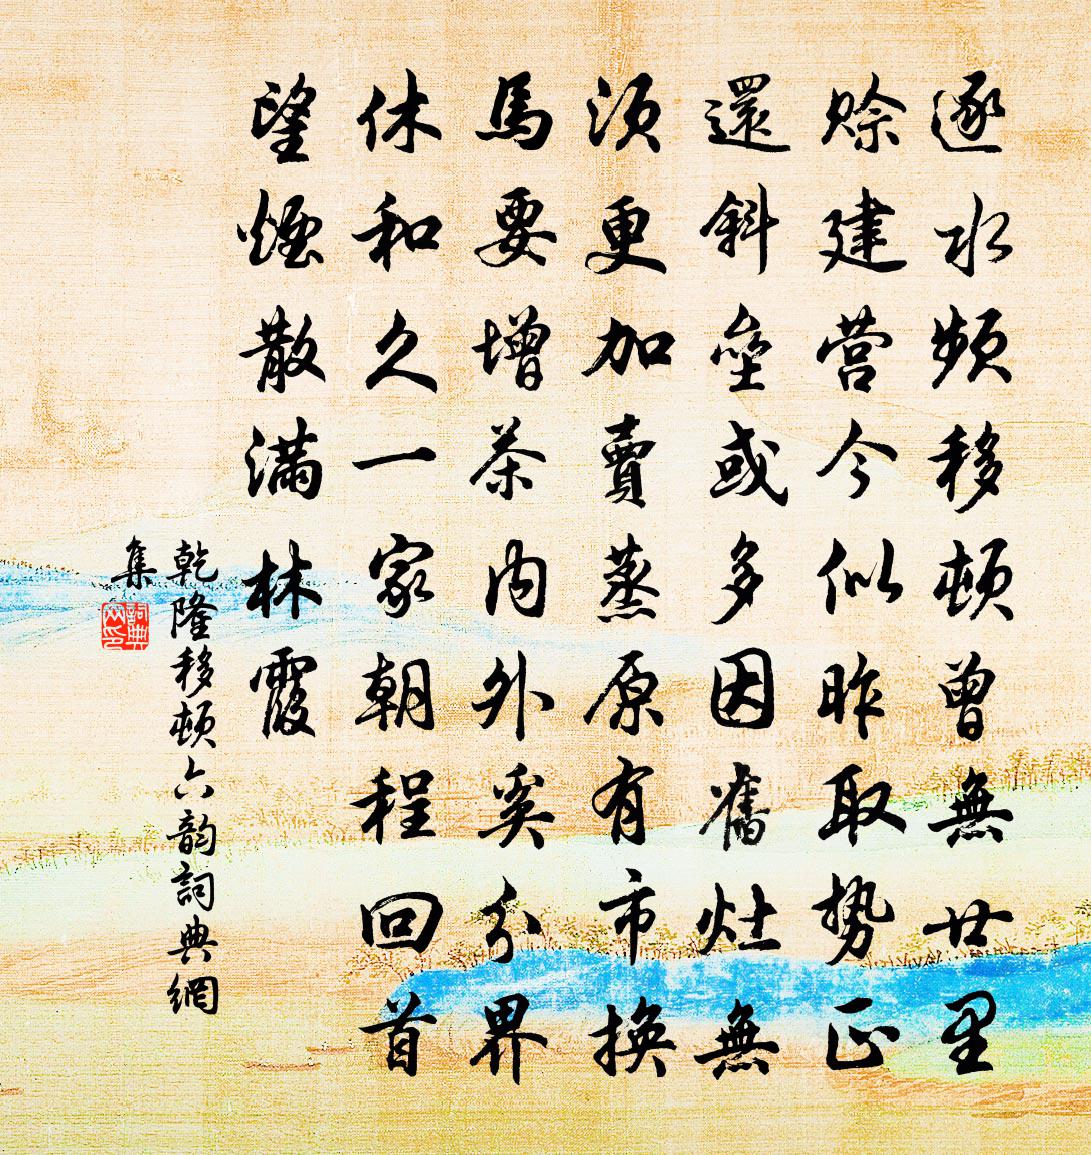 逐水頻移頓曾無廿里
賒建营今似昨取势正
還斜壘或多因舊灶無
須更加賣蒸原有市換
馬要增茶內外奚分界
休和久一家朝程回首
望煙散滿林霞
乾隆移頓六韵詞典網
集
詞典
网印